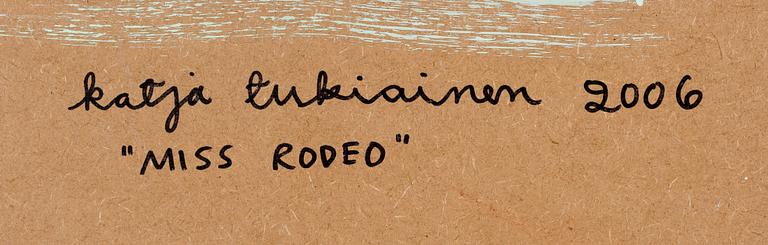 katja tukiainen 2006
"MISS RODEO"